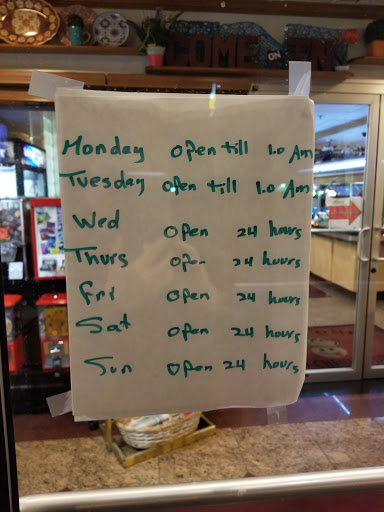 COME ON IN
Monday open till 1.0 Am
Tuesday open till 1.0 Am
Wed open 24 hours
Thurs open 24 hours
Fri open 24 hours
Sat open 24 hours
Sun open 24 hours